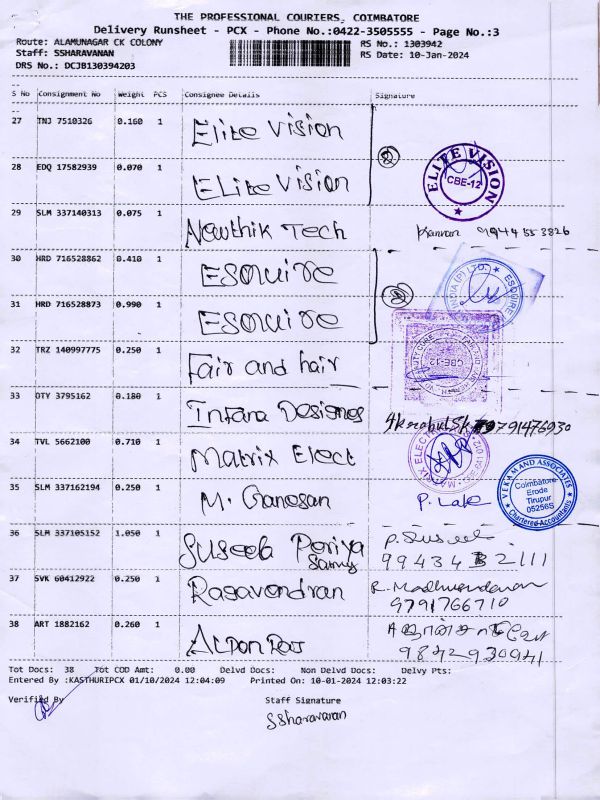 THE PROFESSIONAL COURIERS, COIMBATORE
Delivery Runsheet - PCX - Phone No.:0422-3505555 - Page No.:3
Route: ALAMUNAGAR CK COLONY RS No.: 1303942
Staff: SSHARAVANAN RS Date: 10-Jan-2024
DRS No.: DCJB130394203
S No Consignment No Weight PCS Consignee Details Signature
27 TNJ 7510326 0.160 1 Elite vision
28 EDQ 17582939 0.070 1 Elite vision
② ELITE VISION CBE-12
29 SLM 337140313 0.075 1 Nowthik Tech Kannan 9944553826
30 HRD 716528862 0.410 1 Esquire
31 HRD 716528873 0.990 1 Esquire
INDIA (P) LTD. ESQUIRE
32 TRZ 140997775 0.250 1 Fair and hair
CBE-12
33 DTY 3795162 0.180 1 Designes
34 TVL 5662100 0.710 1 Matrix Elect
35 SLM 337162194 0.250 1 M. Ganesan
VEKAM AND ASSOCIATES
Coimbatore
Erode
Tirupur
05256S
Chartered Accountants
36 SLM 337105152 1.050 1 Suseela Periya samy P. Suseela
37 SVK 60412922 0.250 1 Ragavendran
9791766710
38 ART 1882162 0.260 1
9842930941
Tot Docs: 38 Tot COD Amt: 0.00 Delvd Docs: Non Delvd Docs: Delvy Pts:
Entered By :KASTHURIPCX 01/10/2024 12:04:09 Printed On: 10-01-2024 12:03:22
Verified By Staff Signature
SSharavanan